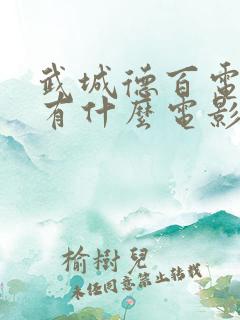 武城德百電
有什麼電影
榆樹兒
未经同意禁止转载